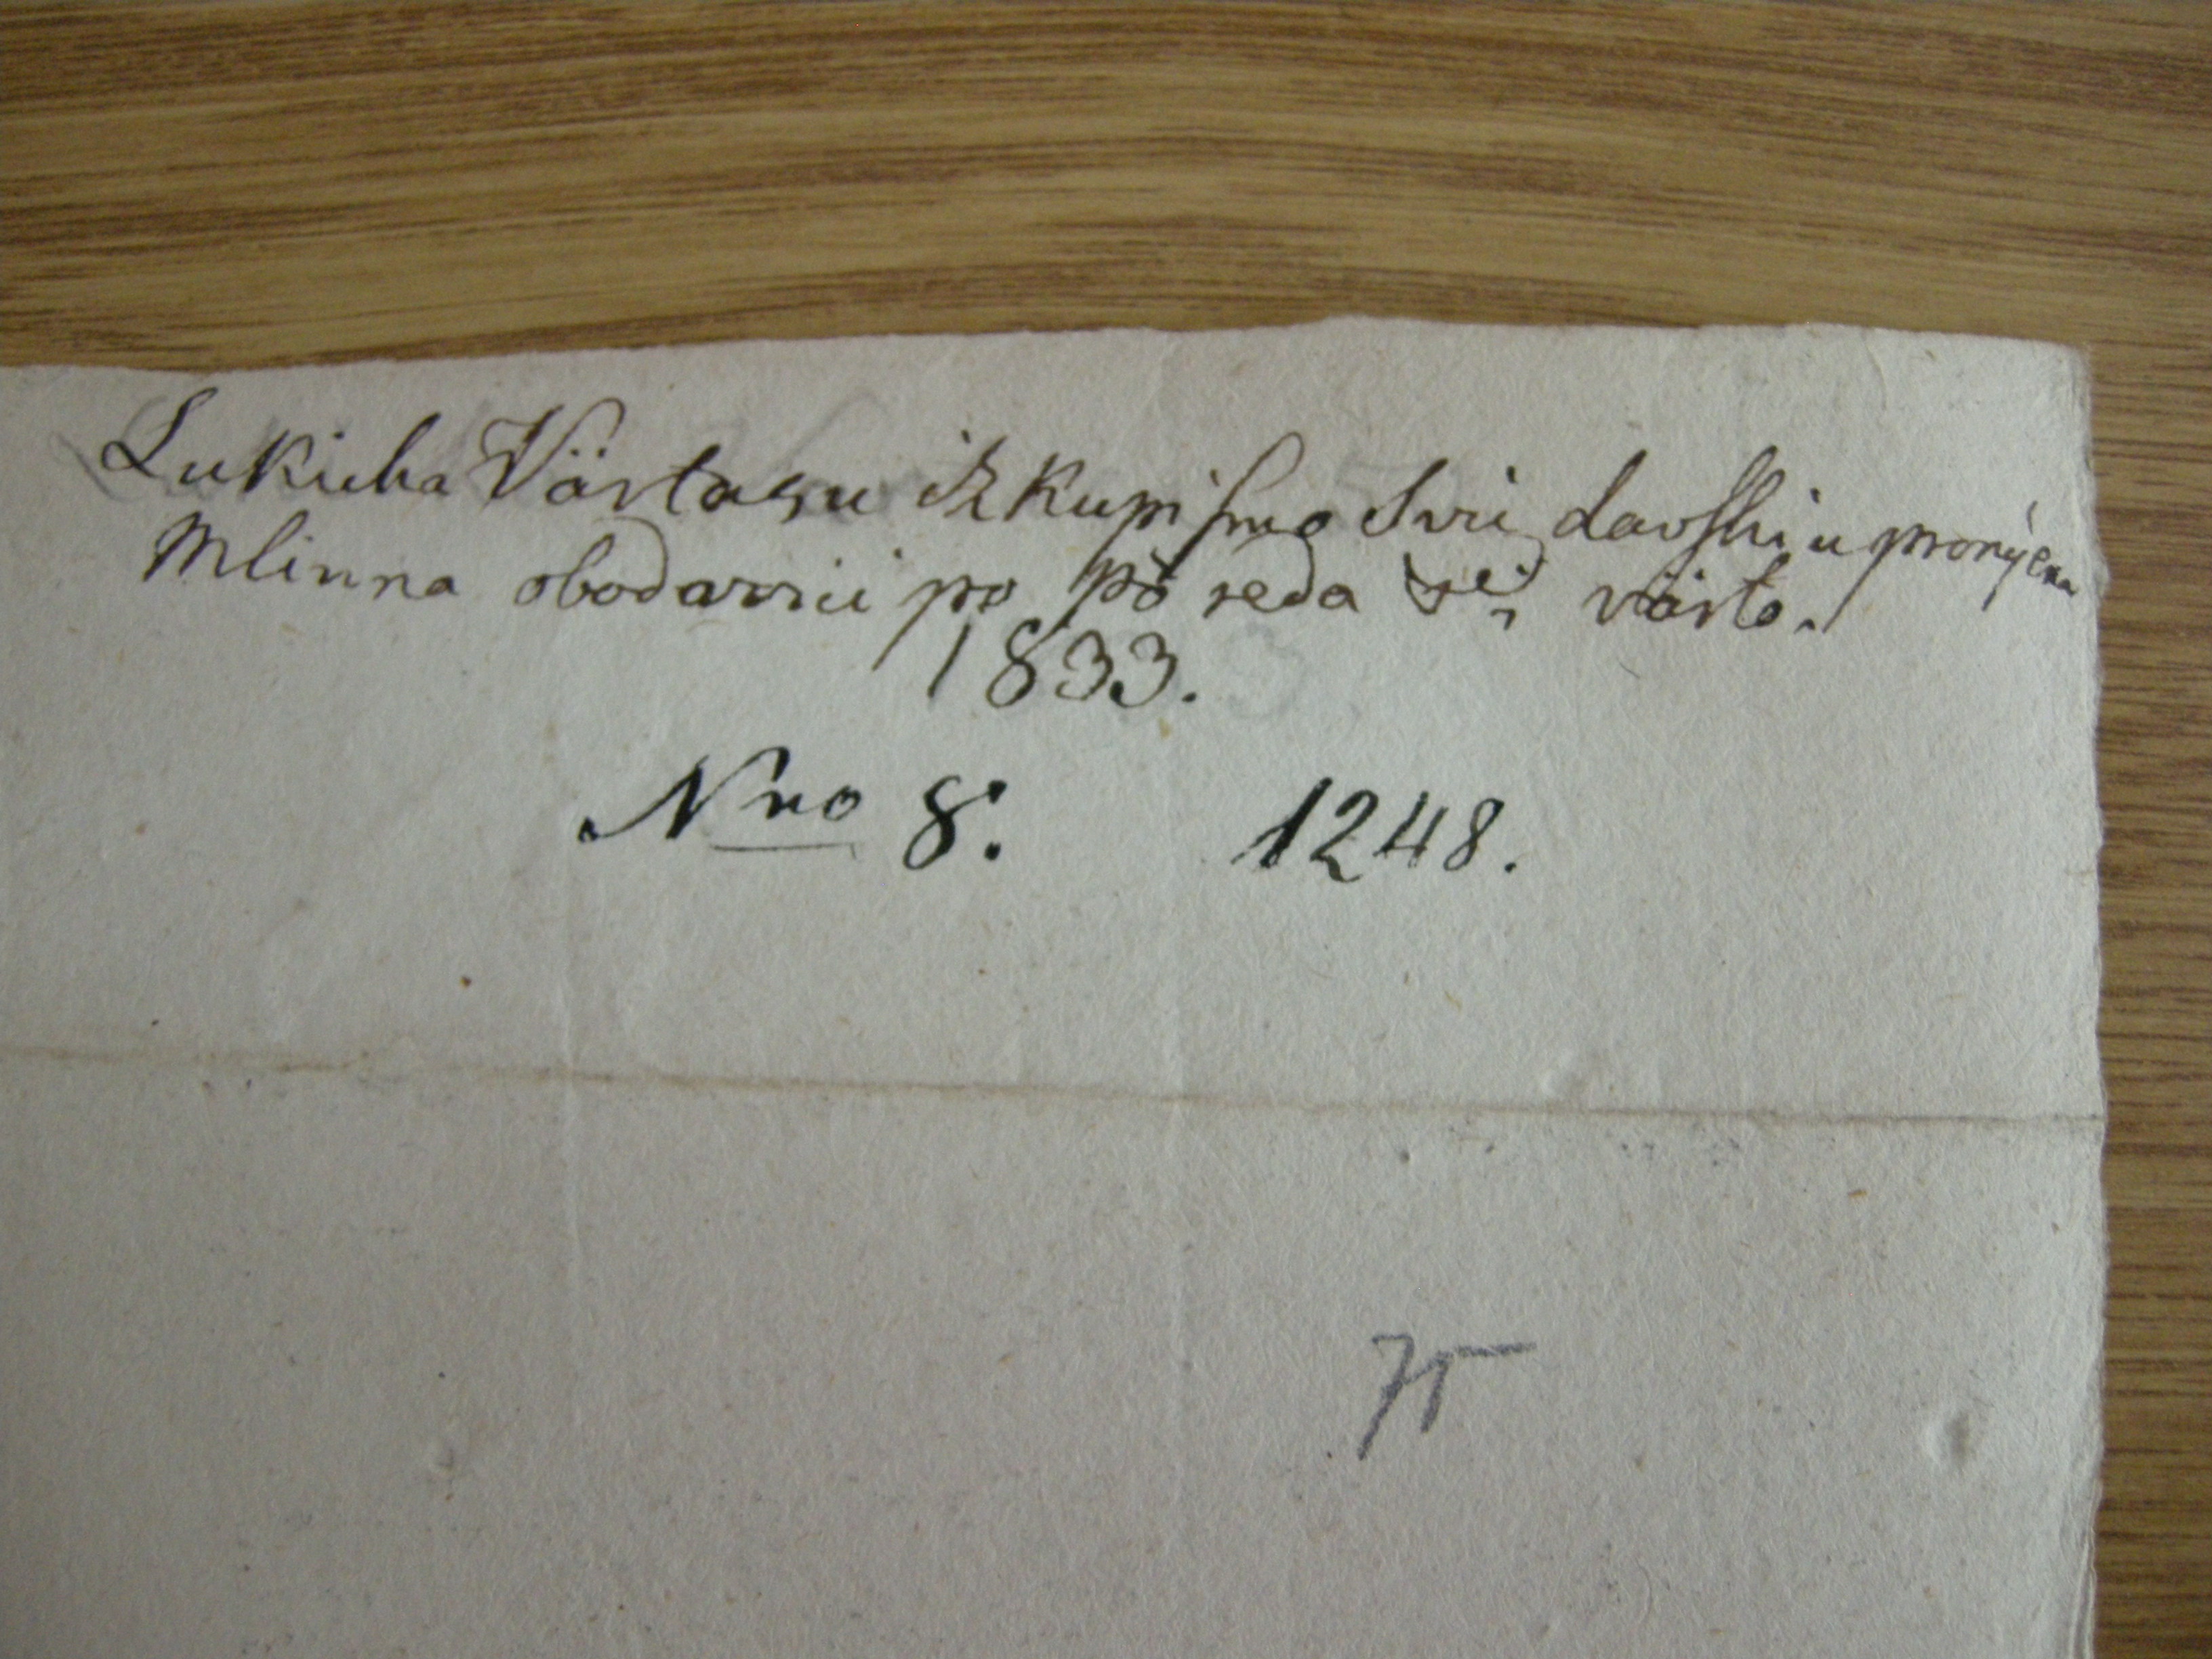 Lukicha Värtasu izkupismo Svii Lavski u promýena
Mlinna obodavvii po pö reda rei värto.
1833.
Nro 8. 1248.
75